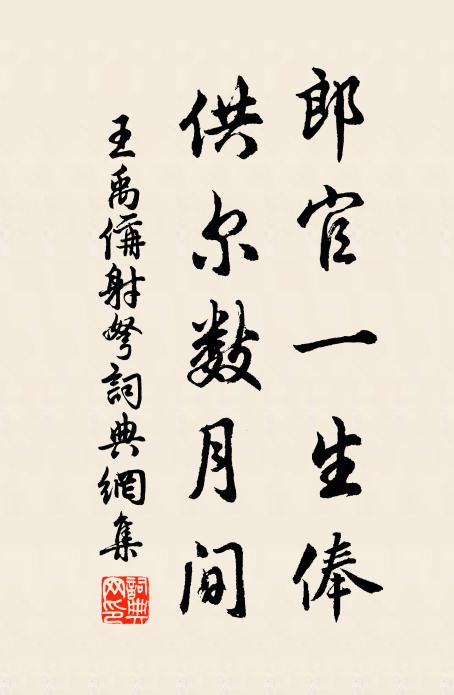 郎官一生俸
供尔数月间
王禹偁射弩詞典網集